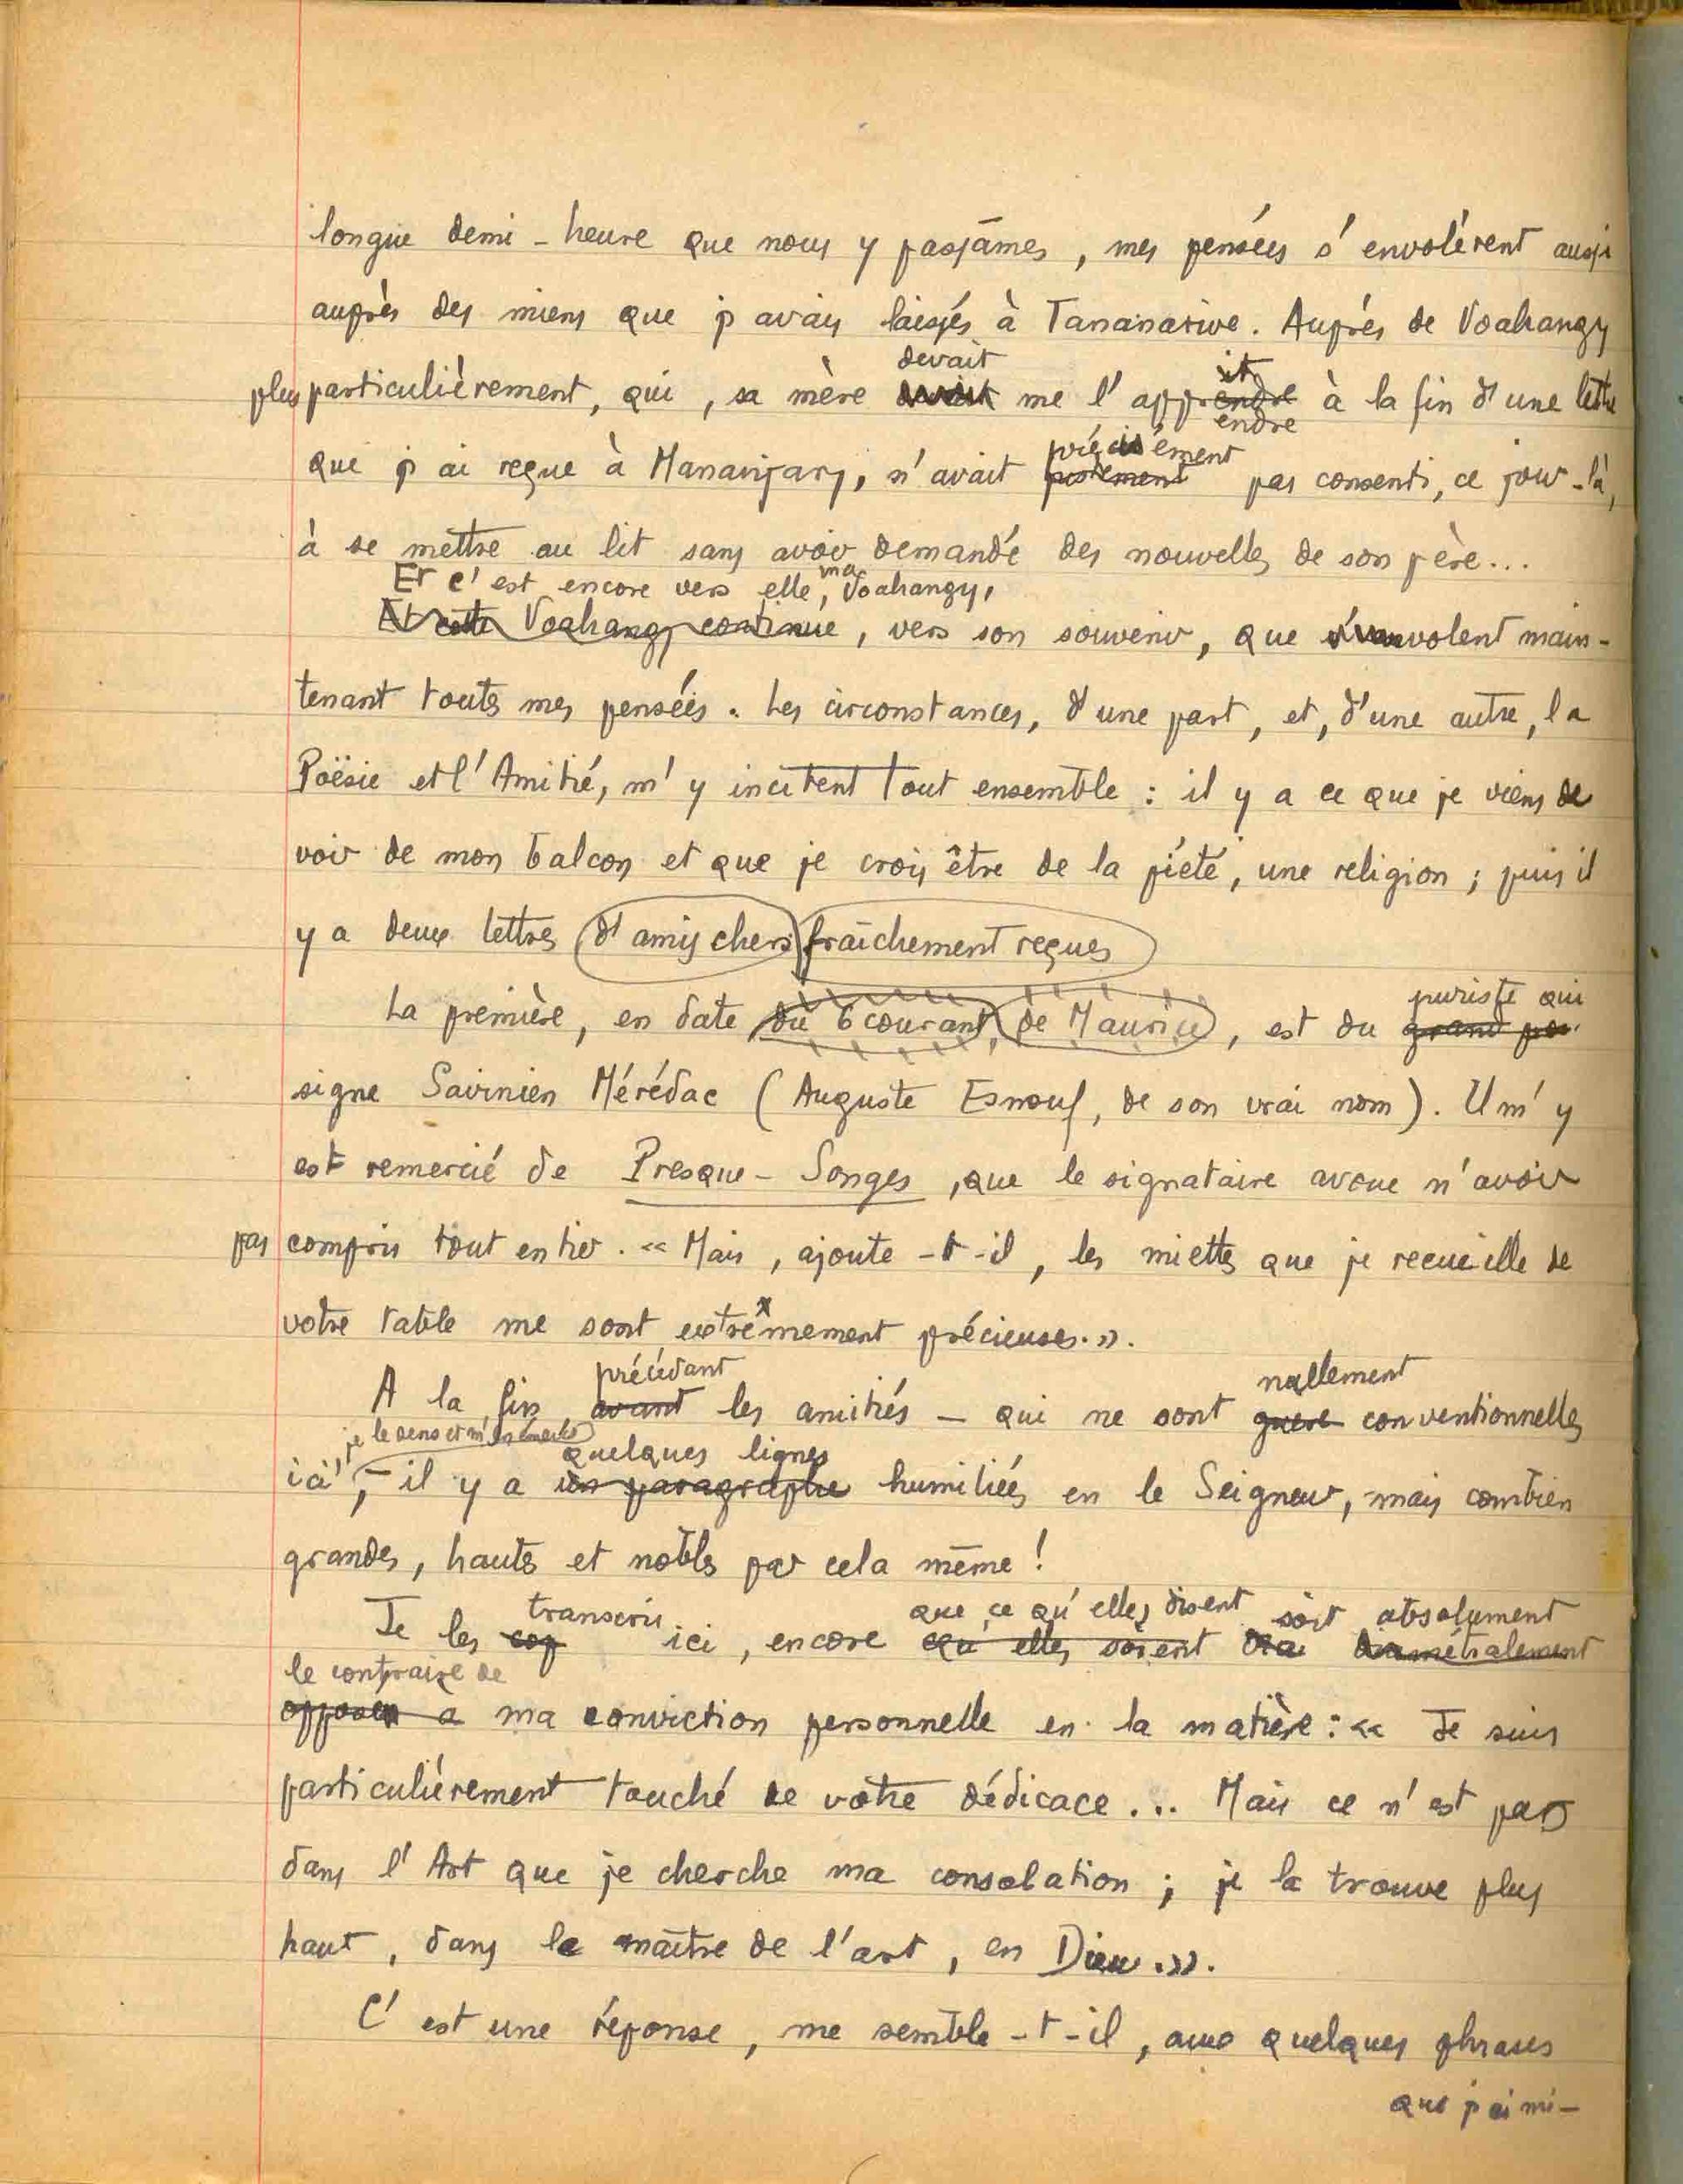 longue demi-heure que nous y passâmes, mes pensées s'envolèrent aussi
auprès des miens que j'avais laissés à Tananarive. Auprès de Voahangy
devait
plus particulièrement, qui, sa mère me l'apprendre à la fin d'une lettre
it
endre
précisément
que j'ai reçue à Mananjary, n'avait justement pas consenti, ce jour-là,
à se mettre au lit sans avoir demandé des nouvelles de son père...
Et c'est encore vers elle, ma Voahangy,
Et cette Voahangy continue, vers son souvenir, que volent main-
tenant toutes mes pensées. Les circonstances, d'une part, et, d'une autre, la
Poësie et l'Amitié, m'y incitent tout ensemble : il y a ce que je viens de
voir de mon balcon et que je crois être de la piété, une religion ; puis il
y a deux lettres d'amis chers fraîchement reçues
puriste qui
La première, en date du 6 courant, de Maurice, est du grand
signe Savinien Mérédac (Auguste Esnouf, de son vrai nom). Il m'y
est remercié de Presque-Songes, que le signataire avoue n'avoir
pas compris tout entier. « Mais, ajoute-t-il, les miettes que je recueille de
votre table me sont extrêmement précieuses. ».
précédant nullement
A la fin avant les amitiés — qui ne sont guère conventionnelles
je le sens et m'en émeus
quelques lignes
ici, — il y a un paragraphe humiliées en le Seigneur, mais combien
grandes, hautes et nobles par cela même !
transcris que ce qu'elles disent soit absolument
Je les cop ici, encore qu'elles soient diamétralement
le contraire de
opposées à ma conviction personnelle en la matière : « Je suis
particulièrement touché de votre dédicace... Mais ce n'est pas
dans l'Art que je cherche ma consolation ; je la trouve plus
haut, dans le maître de l'art, en Dieu. ».
C'est une réponse, me semble-t-il, aux quelques phrases
que j'ai mi-